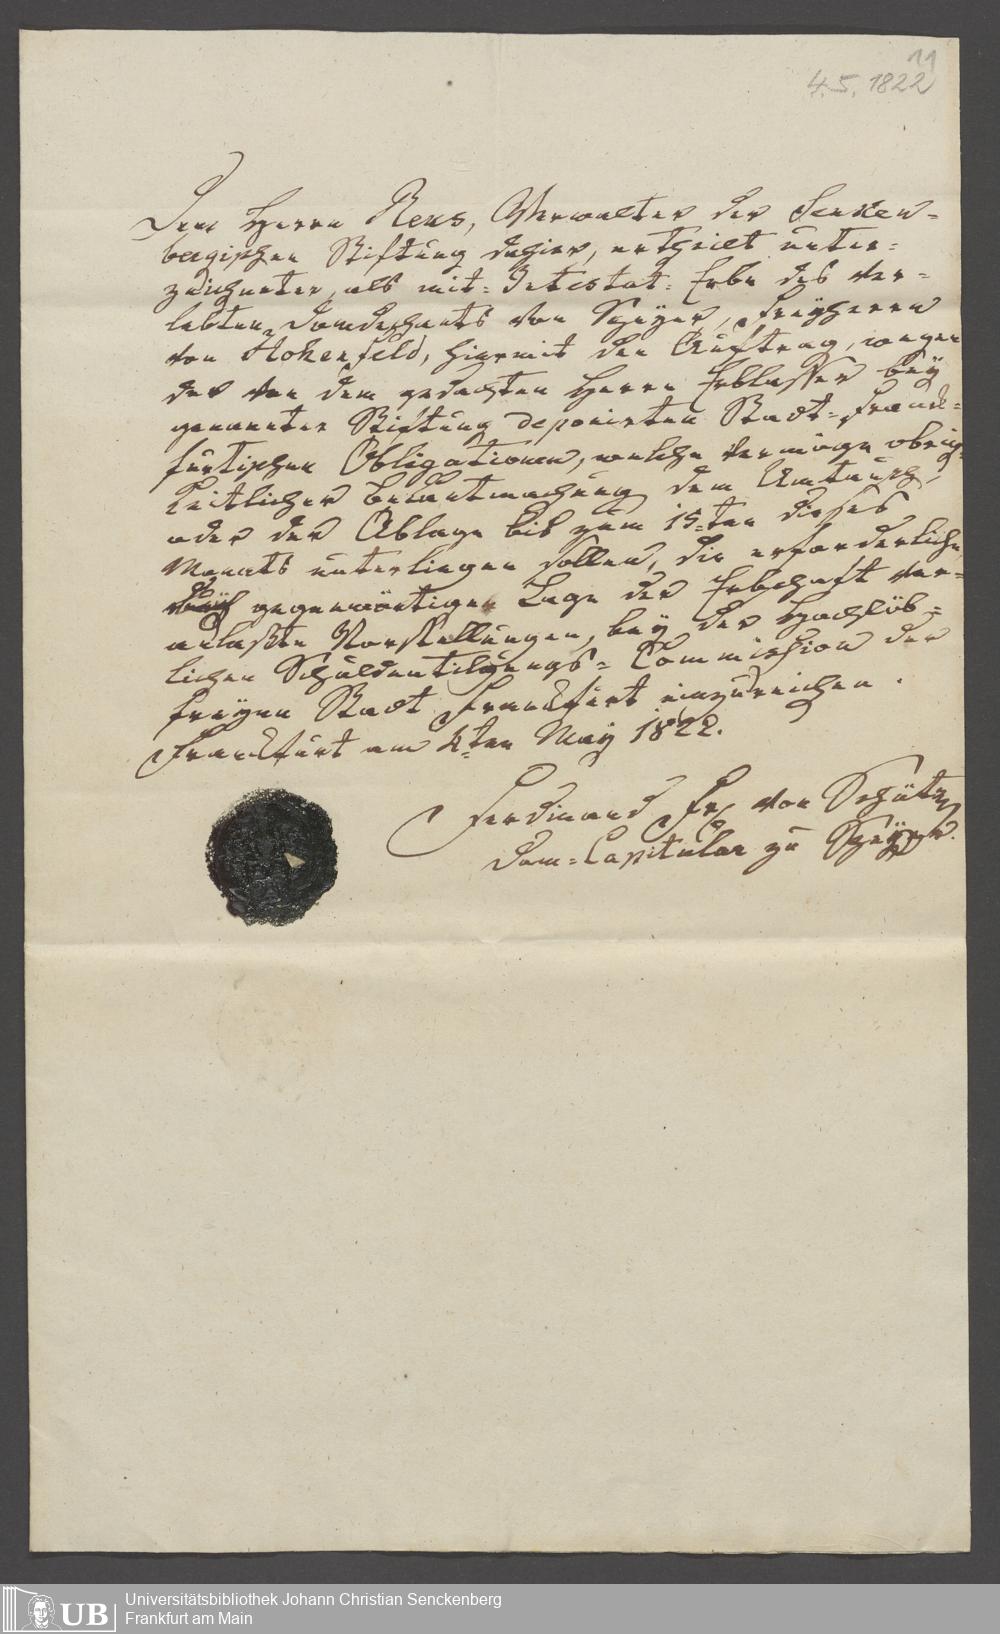 11
4.5.1822
Dem Herrn Rens, Verwalter der Senken-
bergischen Stiftung dahier, ertheilt unter-
zeichneter, als mit-Intestat-Erbe des ver-
lebten Domdechants von Speyer, Freyherrn
von Hohenfeld, hiermit den Auftrag, wegen
der von dem gedachten Herrn Erblasser bey
genannter Stiftung deponirten Stadt-Franck-
furtischen Obligationen, welche vermöge obrig-
keitlicher Bekantmachung dem Umtausch,
oder der Ablage bis zum 15=ten dieses
Monats unterliegen sollen, die erforderliche
gegenwärtiger Lage der Erbschaft ver-
anlaßte Vorstellungen, bey der Hochlöb-
lichen Schuldentilgungs-Commission der
freyen Stadt Frankfurt einzureichen.
Frankfurt am 4ten May 1822.
Ferdinand Fh von Schütz
Dom-Capitular zu Speyer.
UB
Universitätsbibliothek Johann Christian Senckenberg
Frankfurt am Main